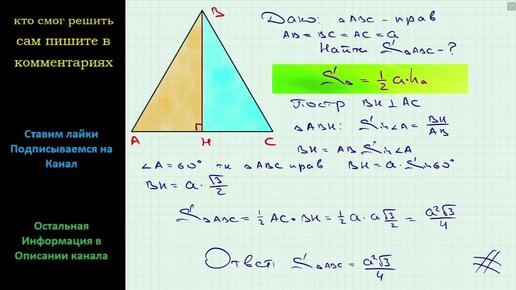 кто смог решить
сам пишите в
комментариях
Ставим лайки
Подписываемся на
Канал
Остальная
Информация в
Описании канала
B
A
H
C
Дано: △ABC - прав
AB = BC = AC = a
Найти S△ABC - ?
S△ = 1/2 a·hₐ
Постр BH ⊥ AC
△ABH: Sin∠A = BH/AB
BH = AB Sin∠A
∠A = 60° тк △ABC прав BH = a·Sin60°
BH = a · √3/2
S△ABC = 1/2 AC·BH = 1/2 a·a√3/2 = a²√3/4
Ответ: S△ABC = a²√3/4